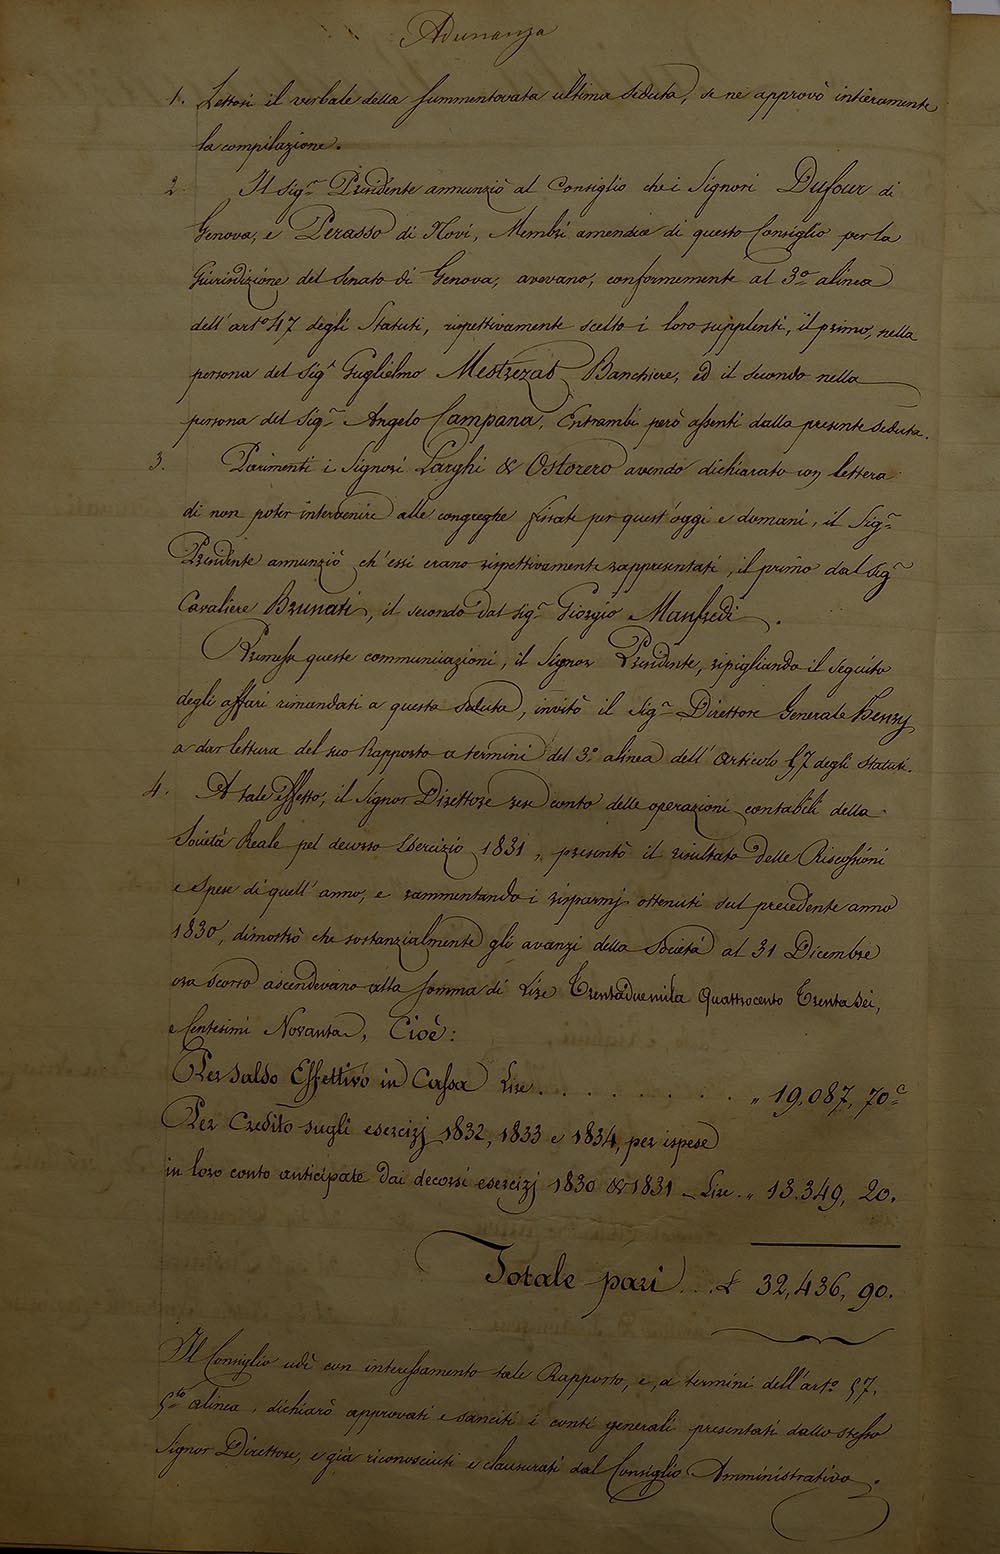 Adunanza
1. Lettosi il verbale della summentovata ultima seduta, se ne approvò intieramente
la compilazione.
2. Il Sig.r Presidente annunziò al Consiglio che i Signori Dufour di
Genova, e Perasso di Novi, Membri amendue di questo Consiglio per la
Giurisdizione del Senato di Genova, avevano, conformemente al 3.o alinea
dell'art.o 47 degli Statuti, rispettivamente scelto i loro supplenti, il primo, nella
persona del Sig.r Guglielmo Mestrezat Banchiere, ed il secondo nella
persona del Sig.r Angelo Campana, Entrambi però assenti dalla presente seduta.
3. Parimenti i Signori Larghi & Ostorero avendo dichiarato con lettera
di non poter intervenire alle congreghe fissate per quest'oggi e domani, il Sig.r
Presidente annunziò ch'essi erano rispettivamente rappresentati, il primo dal Sig.r
Cavaliere Brunati, il secondo dal Sig.r Giorgio Manfredi.
Premesse queste communicazioni, il Signor Presidente, ripigliando il seguito
degli affari rimandati a questa seduta, invitò il Sig.r Direttore Generale Henry
a dar lettura del suo Rapporto a termini del 3.o alinea dell'Articolo 57 degli Statuti.
4. A tale effetto, il Signor Direttore rese conto delle operazioni contabili della
Società Reale pel decorso Esercizio 1831, presentò il risultato delle Riscossioni
e Spese di quell'anno, e rammentando i risparmj ottenuti sul precedente anno
1830, dimostrò che sostanzialmente gli avanzi della Società al 31 Dicembre
ora scorso ascendevano alla somma di Lire Trentaduemila Quattrocento Trentasei,
e Centesimi Novanta, Cioè:
Per Saldo Effettivo in Cassa Lire . . . . . . . . „ 19,087, 70 c
Per Credito sugli esercizj 1832, 1833 e 1834, per ispese
in loro conto anticipate dai decorsi esercizj 1830 & 1831 - Lire . „ 13.349, 20.
Totale pari . . . £ 32,436, 90.
Il Consiglio udì con interessamento tale Rapporto, e, a termini dell'art.o 57,
5.to alinea, dichiarò approvati e sanciti i conti generali presentati dallo stesso
Signor Direttore, e già riconosciuti e clausurati dal Consiglio Amministrativo.